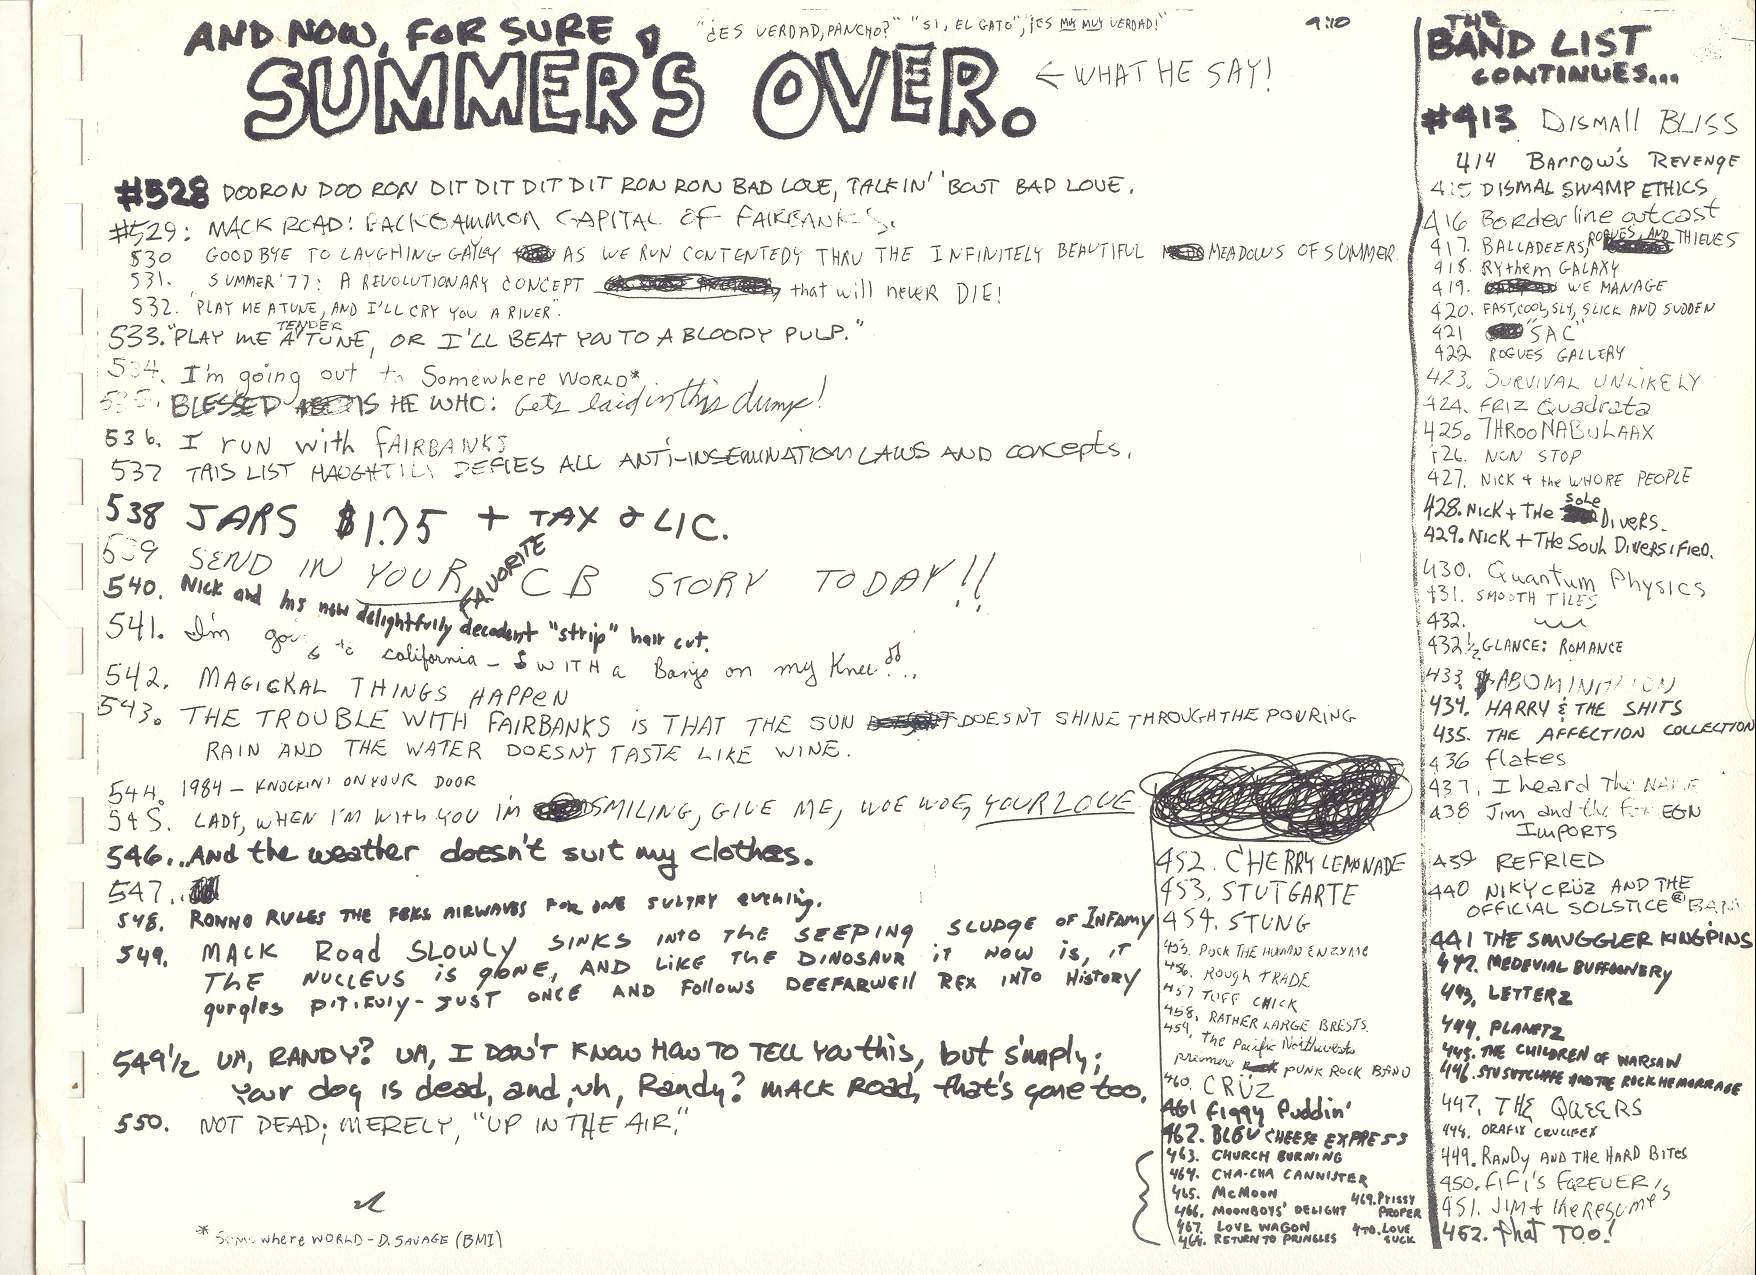 AND NOW, FOR SURE,
"¿ES VERDAD, PANCHO?" "SI, EL GATO", ¡ES MUY VERDAD!"
9:10
SUMMER'S OVER.
← WHAT HE SAY!
#528 DOORON DOO RON DIT DIT DIT DIT RON RON BAD LOVE, TALKIN' 'BOUT BAD LOVE.
#529: MACK ROAD: BACKGAMMON CAPITAL OF FAIRBANKS.
530 GOODBYE TO LAUGHING GAYLEY AS WE RUN CONTENTEDY THRU THE INFINITELY BEAUTIFUL MEADOWS OF SUMMER.
531. SUMMER '77: A REVOLUTIONARY CONCEPT that will never DIE!
532. "PLAY ME A TUNE, AND I'LL CRY YOU A RIVER".
533. "PLAY ME A TENDER TUNE, OR I'LL BEAT YOU TO A BLOODY PULP."
534. I'm going out to Somewhere WORLD*
535. BLESSED IS HE WHO: Gets laid in this dump!
536. I run with FAIRBANKS
537 THIS LIST HAUGHTILY DEFIES ALL ANTI-INSEMINATION LAWS AND concepts.
538 JARS $1.75 + TAX & LIC.
539 SEND IN YOUR FAVORITE CB STORY TODAY!!
540. Nick and his new delightfully decadent "strip" hair cut.
541. I'm going to california - WITH a Banjo on my Knee!...
542. MAGICKAL THINGS HAPPEN
543. THE TROUBLE WITH FAIRBANKS IS THAT THE SUN DOESN'T SHINE THROUGH THE POURING
RAIN AND THE WATER DOESN'T TASTE LIKE WINE.
544. 1984 - KNOCKIN' ON YOUR DOOR
545. LADY, WHEN I'M WITH YOU I'M SMILING, GIVE ME, WOE WOE, YOUR LOVE
546... And the weather doesn't suit my clothes.
547..
548. RONNO RULES THE FBKS AIRWAVES FOR ONE SULTRY evening.
549. MACK Road SLOWLY SINKS INTO THE SEEPING SLUDGE OF INFAMY
THE NUCLEUS IS gONE, AND LIKE THE DINOSAUR IT NOW IS, IT
gurgles PITIFULY - JUST ONCE AND FOLLOWS DEEFARWELL REX INTO HISTORY
549 1/2 UH, RANDY? UH, I DON'T KNOW HOW TO TELL YOU this, but simply;
Your dog is dead, and, uh, Randy? MACK ROAD, that's gone too.
550. NOT DEAD; MERELY, "UP IN THE AIR."
* Somewhere WORLD - D. SAVAGE (BMI)
452. CHERRY LEMONADE
453. STUTGARTE
454. STUNG
455. ROCK THE HUMAN ENZYME
456. ROUGH TRADE
457 TUFF CHICK
458. RATHER LARGE BRESTS.
459. The Pacific Northwests
premiere PUNK ROCK BAND
460. CRÜZ
461 Figgy Puddin'
462. BLEU CHEESE EXPRESS
463. CHURCH BURNING
464. CHA-CHA CANNISTER
465. McMOON
466. MOONBOYS' DELIGHT
467. LOVE WAGON
468. RETURN TO PRINGLES
469. PRISSY
PROPER
470. LOVE
SUCK
THE
BAND LIST
CONTINUES...
#413 DISMALL BLISS
414 BARROW'S REVENGE
415 DISMAL SWAMP ETHICS
416 Borderline outcast
417. BALLADEERS, ROGUES, AND THIEVES
418. RYthem GALAXY
419. WE MANAGE
420. FAST, COOL, SLY, SLICK AND SUDDEN
421 "SAC"
422 ROGUES GALLERY
423. SURVIVAL UNLIKELY
424. FRIZ Quadrata
425. THROONABULAAX
426. NON STOP
427. NICK + the WHORE PEOPLE
428. NICK + THE Sole DIVERS.
429. NICK + THE Soul DIVERSIFIED.
430. Quantum Physics
431. SMOOTH TILES
432.
432 1/2 GLANCE: ROMANCE
433. ABOMINATION
434. HARRY & THE SHITS
435. THE AFFECTION COLLECTION
436 flakes
437. I heard The NAME
438 Jim and the Foreign
IMPORTS
439 REFRIED
440 NIKY CRÜZ AND THE
OFFICIAL SOLSTICE® BAND
441 THE SMUGGLER KINGPINS
442. MEDEVIAL BUFFOONERY
443. LETTERZ
444. PLANETZ
445. THE CHILDREN OF WARSAW
446. STU SUTCLIFFE AND THE ROCK HEMORRAGE
447. THE QUEERS
448. ORAFIX CRUCIFEX
449. RANDY AND THE HARD BITES
450. FIFI'S FOREVER'S
451. JIM + the Resume's
452. That TOO!